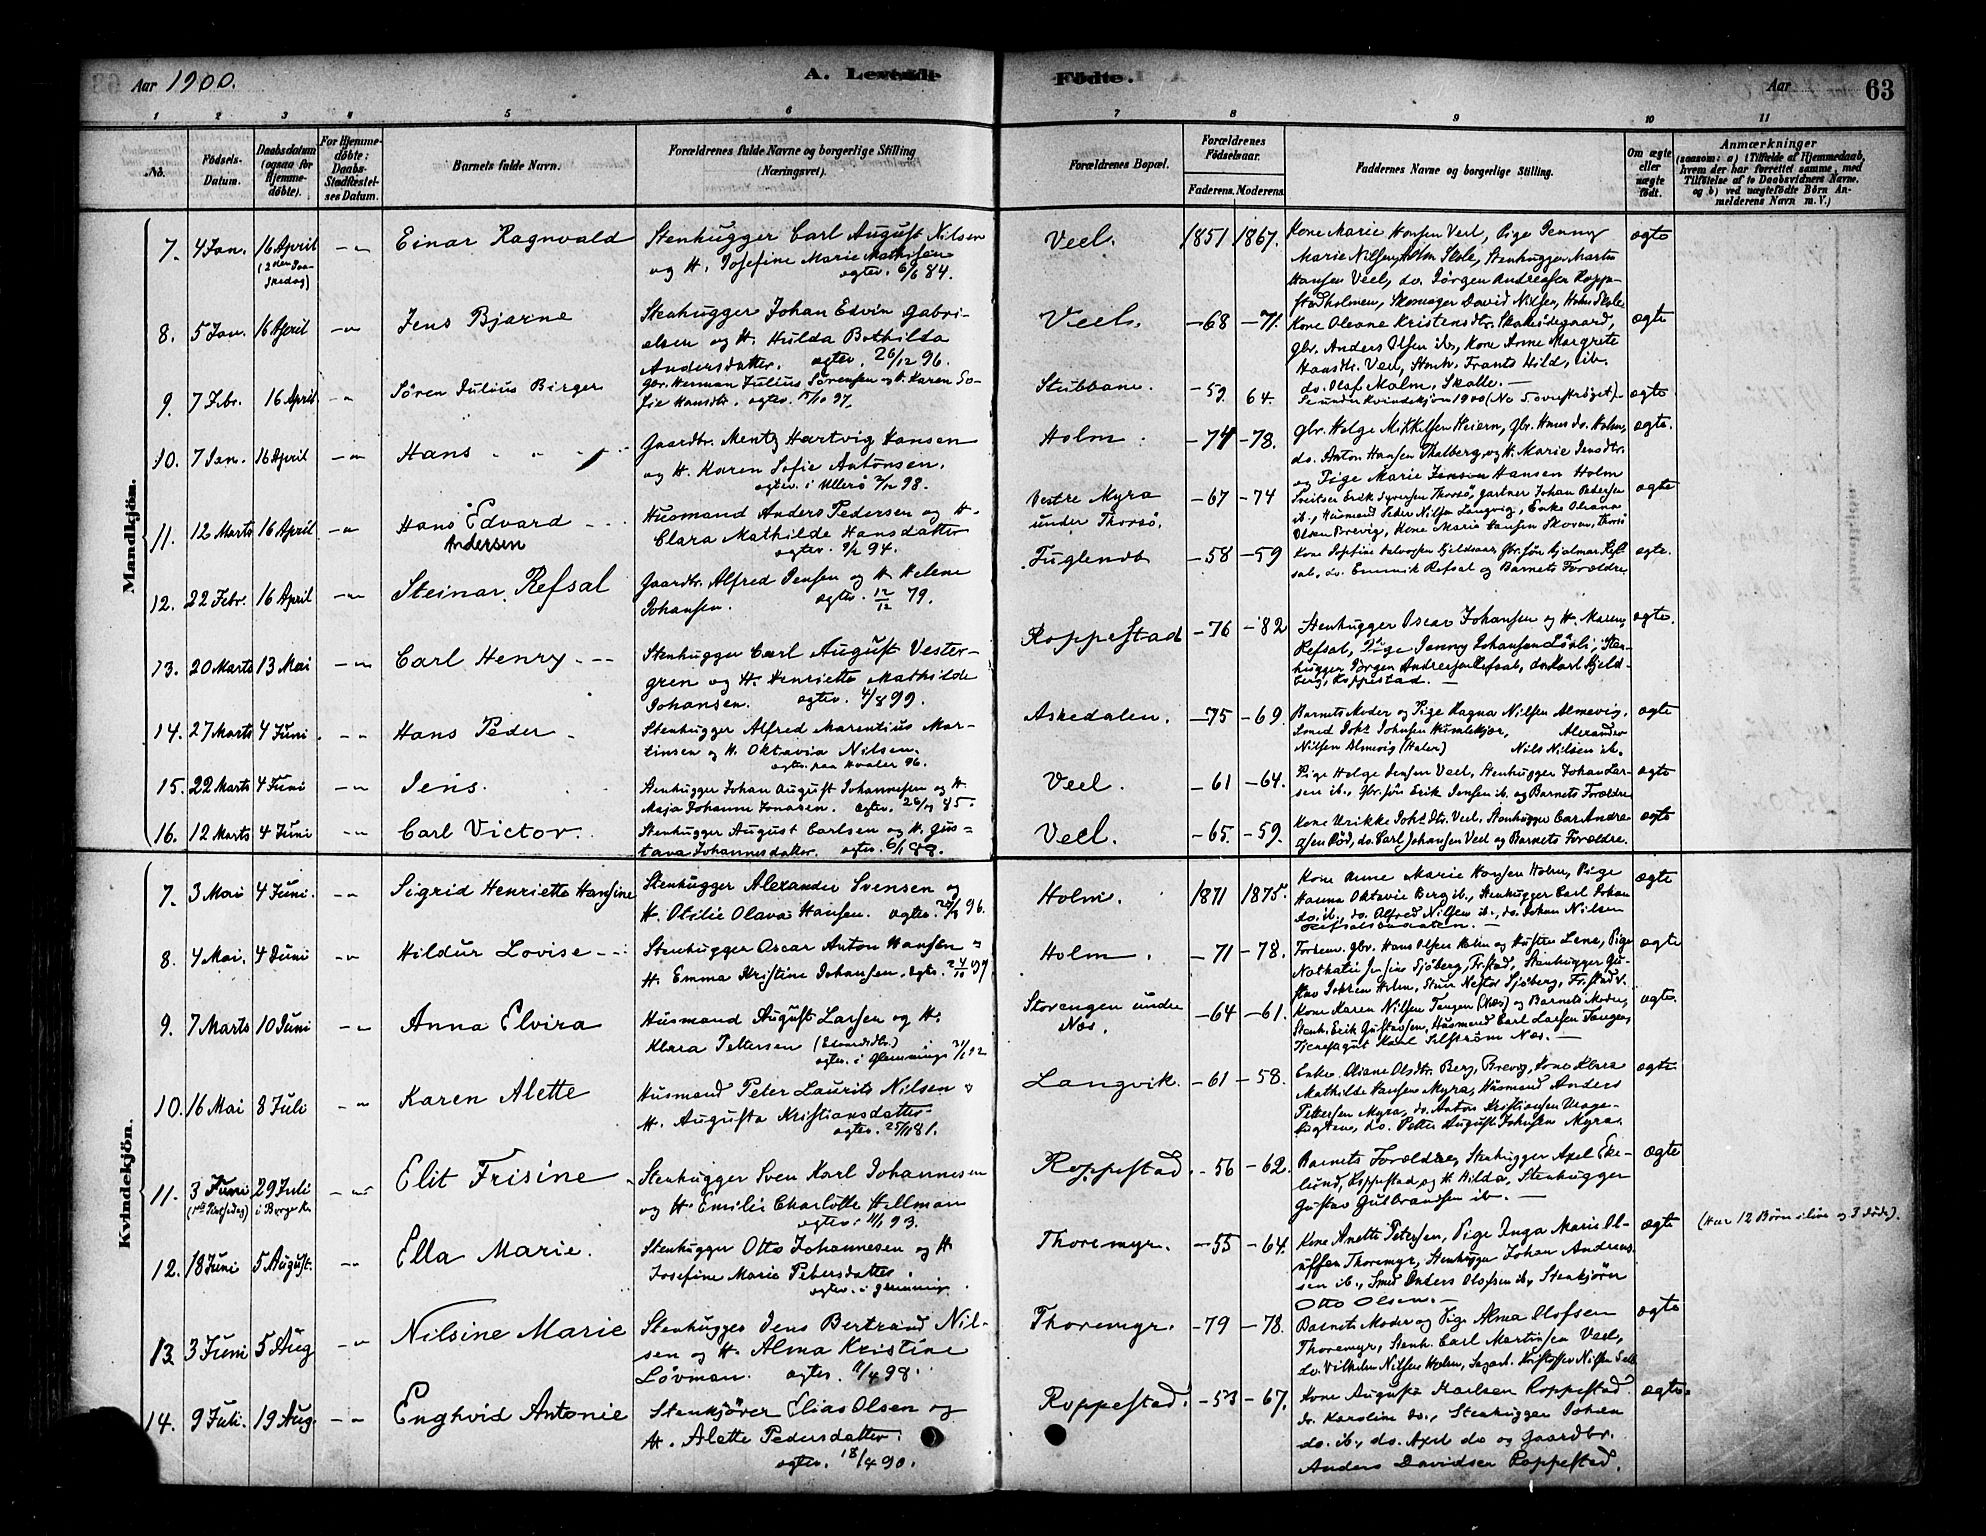 Aar 1900.
A. Levende Fødte.
Aar
63
1 2 3 4 5 6 7 8 9 10 11
No.
Födsels-Datum.
Daabsdatum (ogsaa for Hjemme-döbte).
For Hjemme-döbte: Daabs-Stadfæstel-ses Datum.
Barnets fulde Navn.
Forældrenes fulde Navne og borgerlige Stilling (Næringsvei).
Forældrenes Bopæl.
Forældrenes Födselsaar.
Faderens. Moderens.
Faddernes Navne og borgerlige Stilling.
Om ægte eller uægte födt.
Anmærkninger
(saasom: a) i Tilfælde af Hjemmedaab, hvem der har forrettet samme, med Tilföielse af to Daabsvidners Navne, og b) ved uægtefödte Börn An-melderens Navn m. V.)
Mandkjön.
7. 4 Jan. 16 April Einar Ragnvald
Stenhugger Carl August Nilsen
og H. Josefine Marie Mathisen
ægtev. 6/6 84.
Veel. 1851 1867.
Kone Marie Hansen Veel, Pige Jenny
Marie Nilsen, Holm Skole, Stenhugger Martin
Hansen Veel, do. Jørgen Andreasen Roppe-
stadholmen, Skomager David Nilsen, Holm Skole
ægte
8. 5 Jan. 16 April Jens Bjarne
Stenhugger Johan Edvin Gabri-
elsen og H. Hulda Bothilda
Andersdatter. ægtev. 26/12 96.
Veel. -68 -71.
Kone Oleane Kristensdtr. Skakisdegaard,
Gbr. Anders Olsen ib., Kone Anne Margrete
Hansdtr. Veel, Stenh. Frants Hild, ib.
do. Olaf Malm, Skolle.
ægte
9. 7 Febr. 16 April Søren Julius Birger
Gbr. Herman Julius Sørensen og H. Karen So-
fie Hansdtr. ægtev.
Stubbane. -59. 64.
Se under Kvindekjøn 1900 (No 5 overstrøget)
ægte
10. 7 Jan. 16 April Hans
Gaardbr. Mentz Hartvig Hansen
og H. Karen Sofie Antonsen.
ægtev. i Ullerø 2/12 98.
Holm. -74 -78.
Gbr. Helge Mikkelsen Heiern, Gbr. Hans do. Holm,
do. Anton Hansen Thalberg, og H. Marie Jensdtr.
og Pige Marie Hansen Holm
ægte.
11. 12 Marts 16 April Hans Edvard
Andersen
Husmand Anders Pedersen og H.
Clara Mathilde Hansdatter
ægtev. 94.
Vestre Myra
under Thorsø. -67 -74
Sveitser Erik Syversen Thorsø, Gartner Johan Pedersen
ib., Husmand Peder Nilsen Langvig, Enke Oleana
Olsen Brevig, Kone Marie Hansen Skoven, Thorsø
ægte
12. 22 Febr. 16 April Steinar Refsal
Gaardbr. Alfred Jensen og H. Helene
Johansen. ægtev. 12/12 79.
Fuglenab -58 -59
ægte.
13. 20 Marts 13 Mai Carl Henry
Stenhugger Carl August Vester-
gren og H. Henriette Mathilde
Johansen. ægtev. 4/8 99.
Roppestad -76 -82
Stenhugger Oscar Johansen og H. Maren,
Refsal, Pige Jenny Johansen Løvli, Sten-
hugger Jørgen Andreasen Refsal, do Karl Kjeld-
berg, Roppestad.
ægte.
14. 27 Marts 4 Juni. Hans Peder
Stenhugger Alfred Marentius Mar-
tinsen og H. Oktavia Nilsen.
ægtev. paa Hvaler 96.
Askedalen. -75 -69.
Barnets Moder og Pige Ragna Nilsen Almevig,
Smed Joh. Johnsen Humlekjær, Alexander
Nilsen Almevig (Hvaler) Nils Nilsen ib.
ægte
15. 22 Marts 4 Juni Jens.
Stenhugger Johan August Johannesen og H
Maja Johanne Jonasen. ægtev. 85.
Veel. -61 -64.
Pige Helga Jensen Veel, Stenhugger Johan Lar-
sen ib., Gbr. søn Erik Jensen ib. og Barnets Forældre
ægte
16. 12 Marts 4 Juni Carl Victor.
Stenhugger August Carlsen og H. Gus-
tava Johannesdatter. ægtev. 6/1 88.
Veel. -65. -59.
Kone Ulrikke Joh. dtr. Veel, Stenhugger Carl Andre-
asen Rød, do. Carl Johansen Veel og Barnets Forældre.
ægte
Kvindekjön.
7. 3 Mai 4 Juni. Sigrid Henriette Hansine
Stenhugger Alexander Svensen og
H. Otilie Olava Hansen. ægtev. 96.
Holm. 1871 1875.
Kone Anne Marie Hansen Holm, Pige
Hanna Oktavie Berg ib., Stenhugger Carl Johan
do. ib., do. Alfred Nilsen ib., do. Johan Nilsen
ægte
8. 4 Mai. 4 Juni Hildur Lovise
Stenhugger Oscar Anton Hansen og
H. Emma Kristine Johansen. ægtev. 97
Holm. -71 -78.
Forhenv. Gbr. Hans Olsen Holm og Hustru Lene, Pige
Nathalie Josefine Sjøberg, Fr.stad, Stenhugger Gu-
stav Johnsen Holm, Stuer Nestor Sjøberg, Fr.stad.
ægte
9. 7 Marts 10 Juni Anna Elvira
Husmand August Larsen og H.
Klara Pettersen (Edvardsdtr.)
ægtev. i Glemminge 92
Storengen under
Næs. -64 -61.
Kone Karen Nilsen Tangen (Næs) og Barnets Moder,
Stenh. Erik Gustavsen, Husmand Carl Larsen Tangen,
Tjenestgut Karl Silfström Næs.
ægte.
10. 16 Mai 8 Juli Karen Alette
Husmand Peter Laurits Nilsen og
H. Augusta Kristiansdatter
ægtev. 25/11 81.
Langvik. -61 -58.
Enke Oliane Olsdtr. Berg, Brevig, Kone Klara
Mathilde Hansen Myra, Husmand Anders
Pettersen Myra, do. Anton Kristiansen
do. Petter August Johnsen Myra.
ægte
11. 3 Juni (1ste Pintsedag) 29 Juli i Borge K. Elit Frisine
Stenhugger Sven Karl Johannesen
og H. Emilie Charlotte Hellman
ægtev. 93.
Roppestad. -56 -62.
Barnets Forældre, Stenhugger Axel Eke-
lund, Roppestad, og H. Hilda, Stenhugger
Gustav Gulbrandsen ib.
ægte
12. 18 Juni 5 August. Ella Marie.
Stenhugger Otto Johannesen og H
Josefine Marie Petersdatter.
ægtev. i Glemminge.
Thoremyr. -55 -64.
Kone Anette Petersen, Pige Inga Marie Ol-
uffsen Thoremyr, Stenhugger Johan Andrea-
sen ib., Smed Anders Olofsen ib., Stenkjører
Otto Olsen.
ægte
(Har 12 Børn ilive og 3 døde).
13. 3 Juni 5 Aug Nilsine Marie
Stenhugger Jens Bertrand Nil-
sen og H. Alma Kristine
Lövman. ægtev. 98.
Thoremyr. -79 -78.
Barnets Moder og Pige Alma Olofsen
Thoremyr, Stenh. Carl Martinsen Veel,
do. Vilhelm Nilsen Holm, Sagarb. Kristoffer Nilsen
ægte
14. 9 Juli. 19 Aug. Enghvid Antonie
Stenkjører Elias Olsen og
H. Alette Pedersdatter.
ægtev. 18/4 90.
Roppestad. -53 -67.
Kone Augusta Karlsen Roppestad
do. Karoline do., Stenhugger Johan
do. ib., do. Axel do og Gaardbr.
Anders Davidsen Roppestad.
ægte.